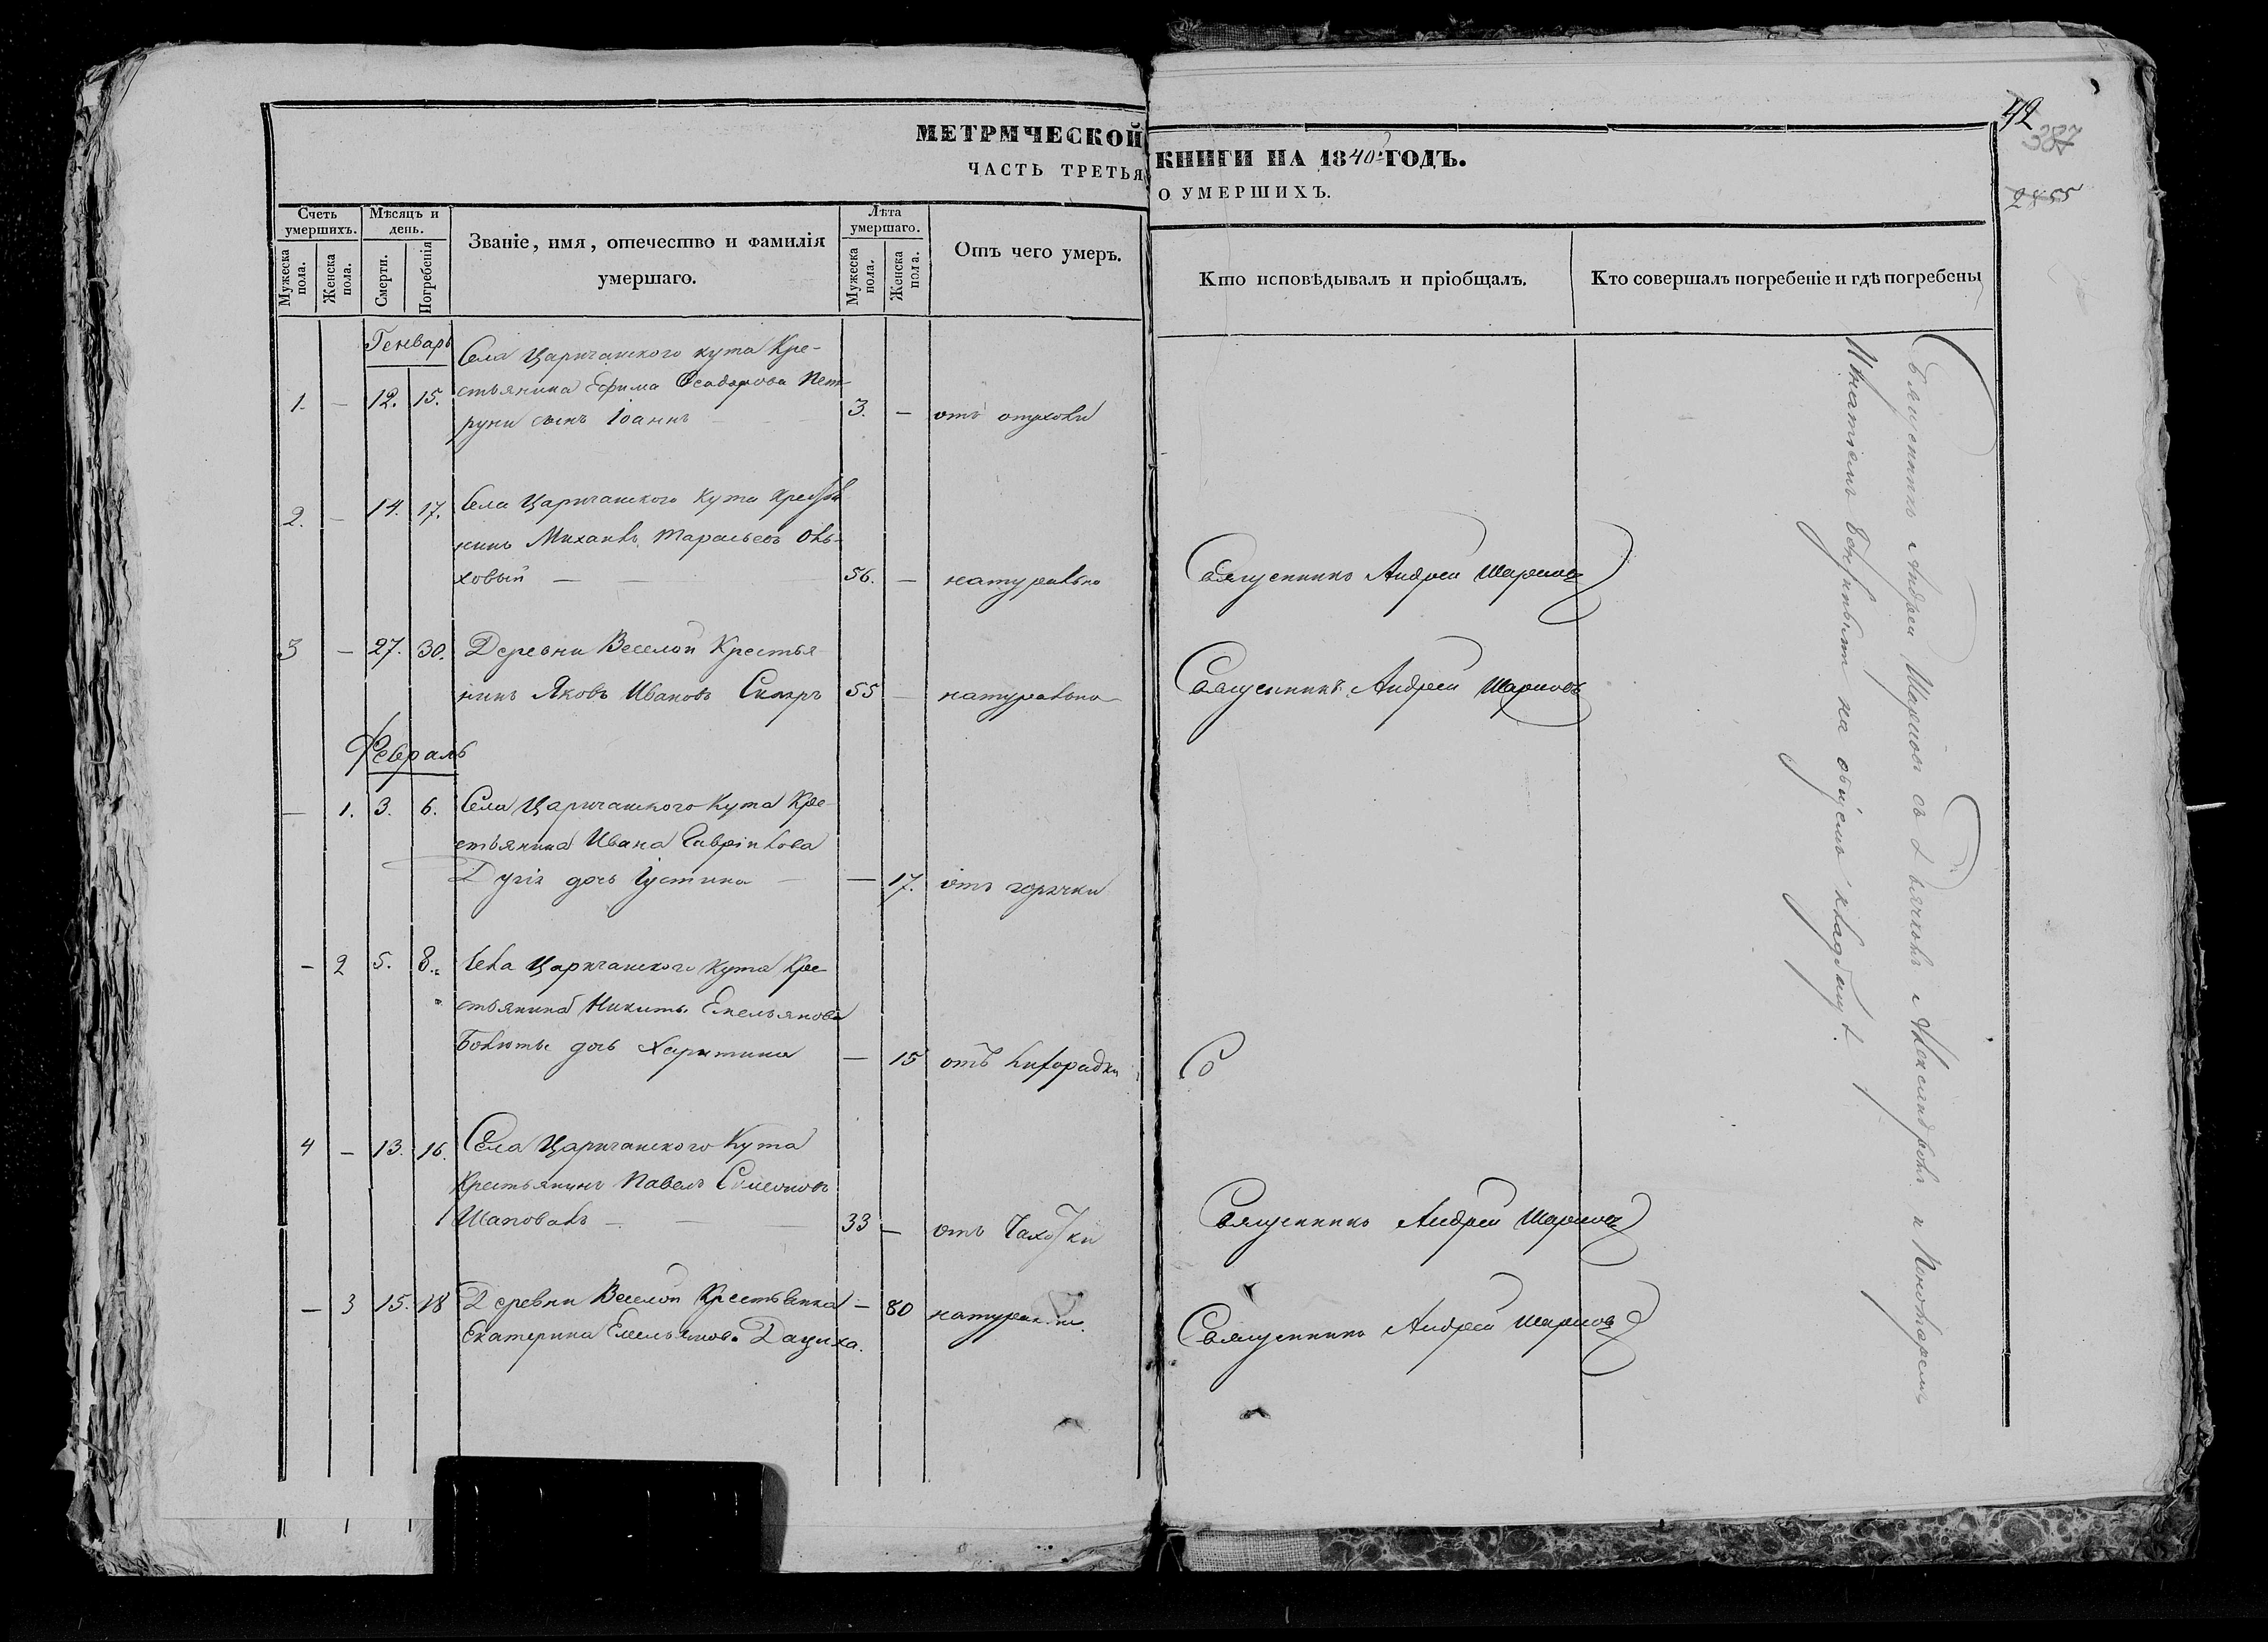 МЕТРИЧЕСКОЙ КНИГИ НА 1840 ГОДЪ.
ЧАСТЬ ТРЕТЬЯ О УМЕРШИХЪ.
42
387
2855
Счетъ умершихъ.
Мужеска пола.
Женска пола.
Мѣсяцъ и день.
Смерти.
Погребенія
Званіе, имя, отечество и фамилія умершаго.
Лѣта умершаго.
Мужеска пола.
Женска пола.
Отъ чего умеръ.
Кто исповѣдывалъ и пріобщалъ.
Кто совершалъ погребеніе и гдѣ погребены
Генварь
Села Царичанского кута Кре-
1. — 12. 15. стьянина Ефима Феодорова Пет-
руни сынъ Іоаннъ — 3. — отъ
2. — 14. 17. Села Царичанского Кута Крестья
нинъ Михаилъ Тарасьевъ
ховый — 56. — натурально Священникъ Андрей
3 — 27. 30. Деревни Веселой Крестья
нинъ Яковъ Ивановъ 55 — натурально Священникъ Андрей
Февраль
— 1. 3. 6. Села Царичанского Кута Кре-
стьянина Ивана Гавріилова
дочь Іустина — — 17. отъ горячки
— 2 5. 8. Села Царичанского Кута Кре-
стьянина Никиты Емельянова
дочь Харитина — 15 отъ лихорадки С
4 — 13. 16. Села Царичанского Кута
Крестьянинъ Павелъ Симеоновъ
Шаповалъ — 33 — отъ Чахотки Священникъ Андрей
— 3 15. 18 Деревни Веселой Крестьянка — 80 натурально Священникъ Андрей
Екатерина Емельянова Дациха.
Священникъ Андрей съ Дьячкомъ Александромъ и Пономаремъ
Игнатіемъ на общемъ кладбищѣ.